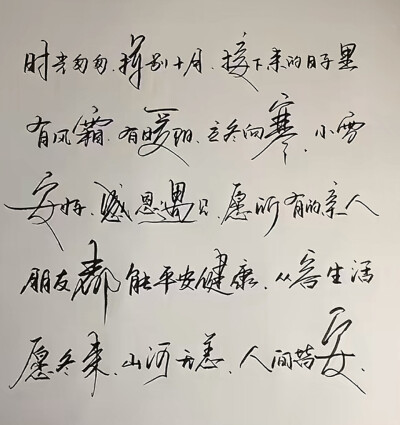 时光匆匆、挥别十月、接下来的日子里
有风霜、有暖阳、立冬向寒、小雪
安好、感恩遇见、愿所有的亲人
朋友都能平安健康、从容生活
愿冬来、山河无恙、人间皆安、